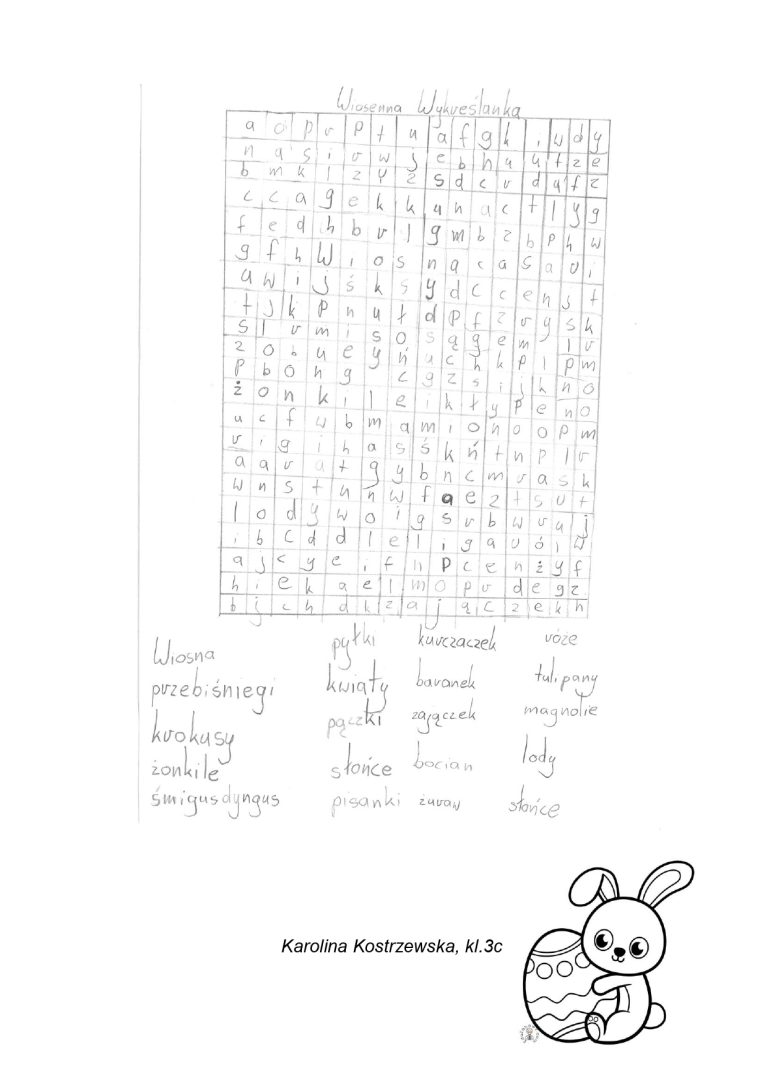 Wiosenna Wykreślanka
a o p r p t u a f g h i w d y
n a s i r w j e b h u u f z e
b m k l z y z s d c r d y f z
c c a g e k k u n a c t l y g
f e d h b r l g m b z b p h w
g f h w i o s n a c a s a d i
u w i j ś k s y d c c e n j t
t j k p n u ł d p f z r y s k
s l r m i s o s ą g e m l r
z o b u e y ń u c h k p i p m
p b o h g c g z s i j k n o
ż o n k i l e i k ł y p e n o
u c f w b m a m i o n o o p m
r i g i h a s ś k ń t n p l r
a a r a t g y b n c m r a s k
w n s t u n w f a e z t s u t
l o d y w o i g s r b w r u j
i b c d d l e l i g a u ó i w
a j c y e i f n p c e n ż y f
h i e k a e l m o p r d e g z
b j c h d k z a j ą c z e k h
Wiosna pyłki kurczaczek róże
przebiśniegi kwiaty baranek tulipany
krokusy pączki zajączek magnolie
żonkile słońce bocian lody
śmigusdyngus pisanki żuraw słońce
Karolina Kostrzewska, kl.3c